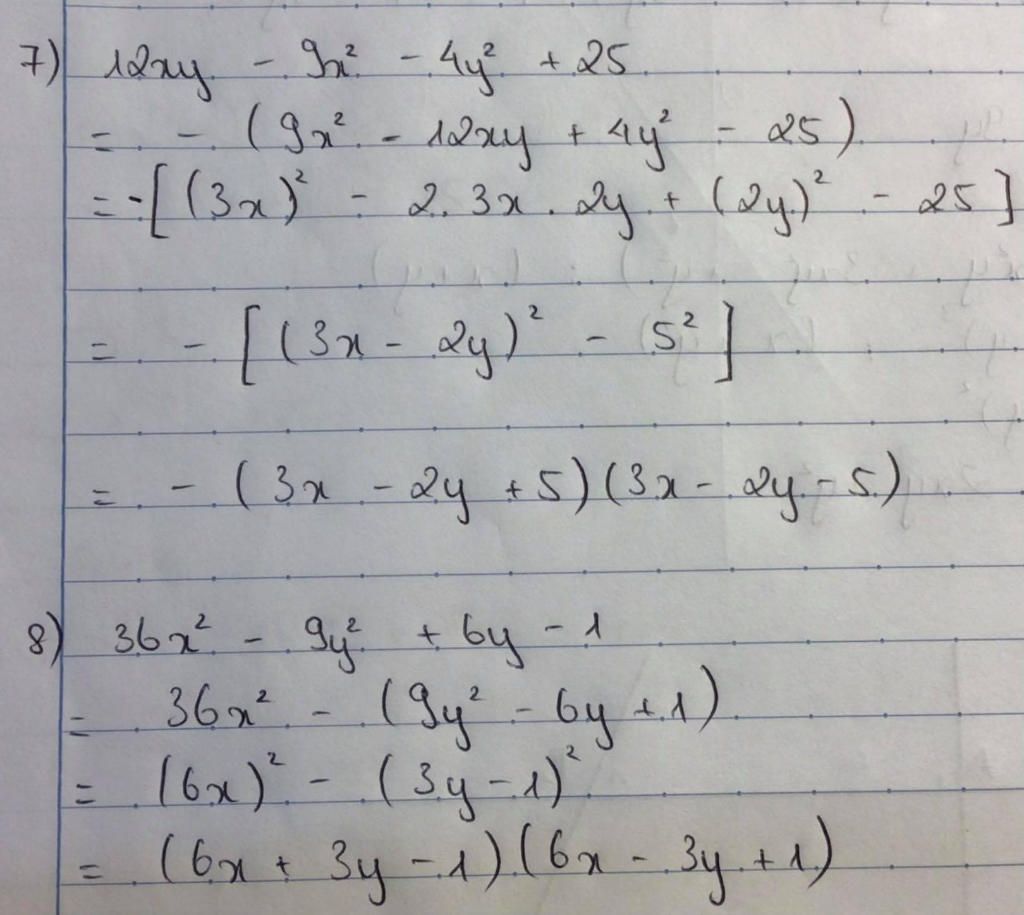 7) 12xy - 9x² - 4y² + 25
= - (9x² - 12xy + 4y² - 25)
= -[(3x)² - 2.3x.2y + (2y)² - 25]
= - [(3x - 2y)² - 5²]
= - (3x - 2y + 5)(3x - 2y - 5)
8) 36x² - 9y² + 6y - 1
= 36x² - (9y² - 6y + 1)
= (6x)² - (3y - 1)²
= (6x + 3y - 1)(6x - 3y + 1)